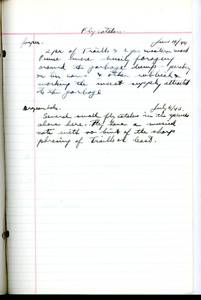 Flycatchers
June 10/44
2 prs of Traills & 2 prs western wood
Pewee were busily foraging
around the garbage dump, perching
on tin cans & other rubbish &
working the insect supply attracted
to the garbage
July 9/46
Several small flycatchers in the
alone here. They gave a musical
note with no hint of the sharp
phrasing of Traills at least.